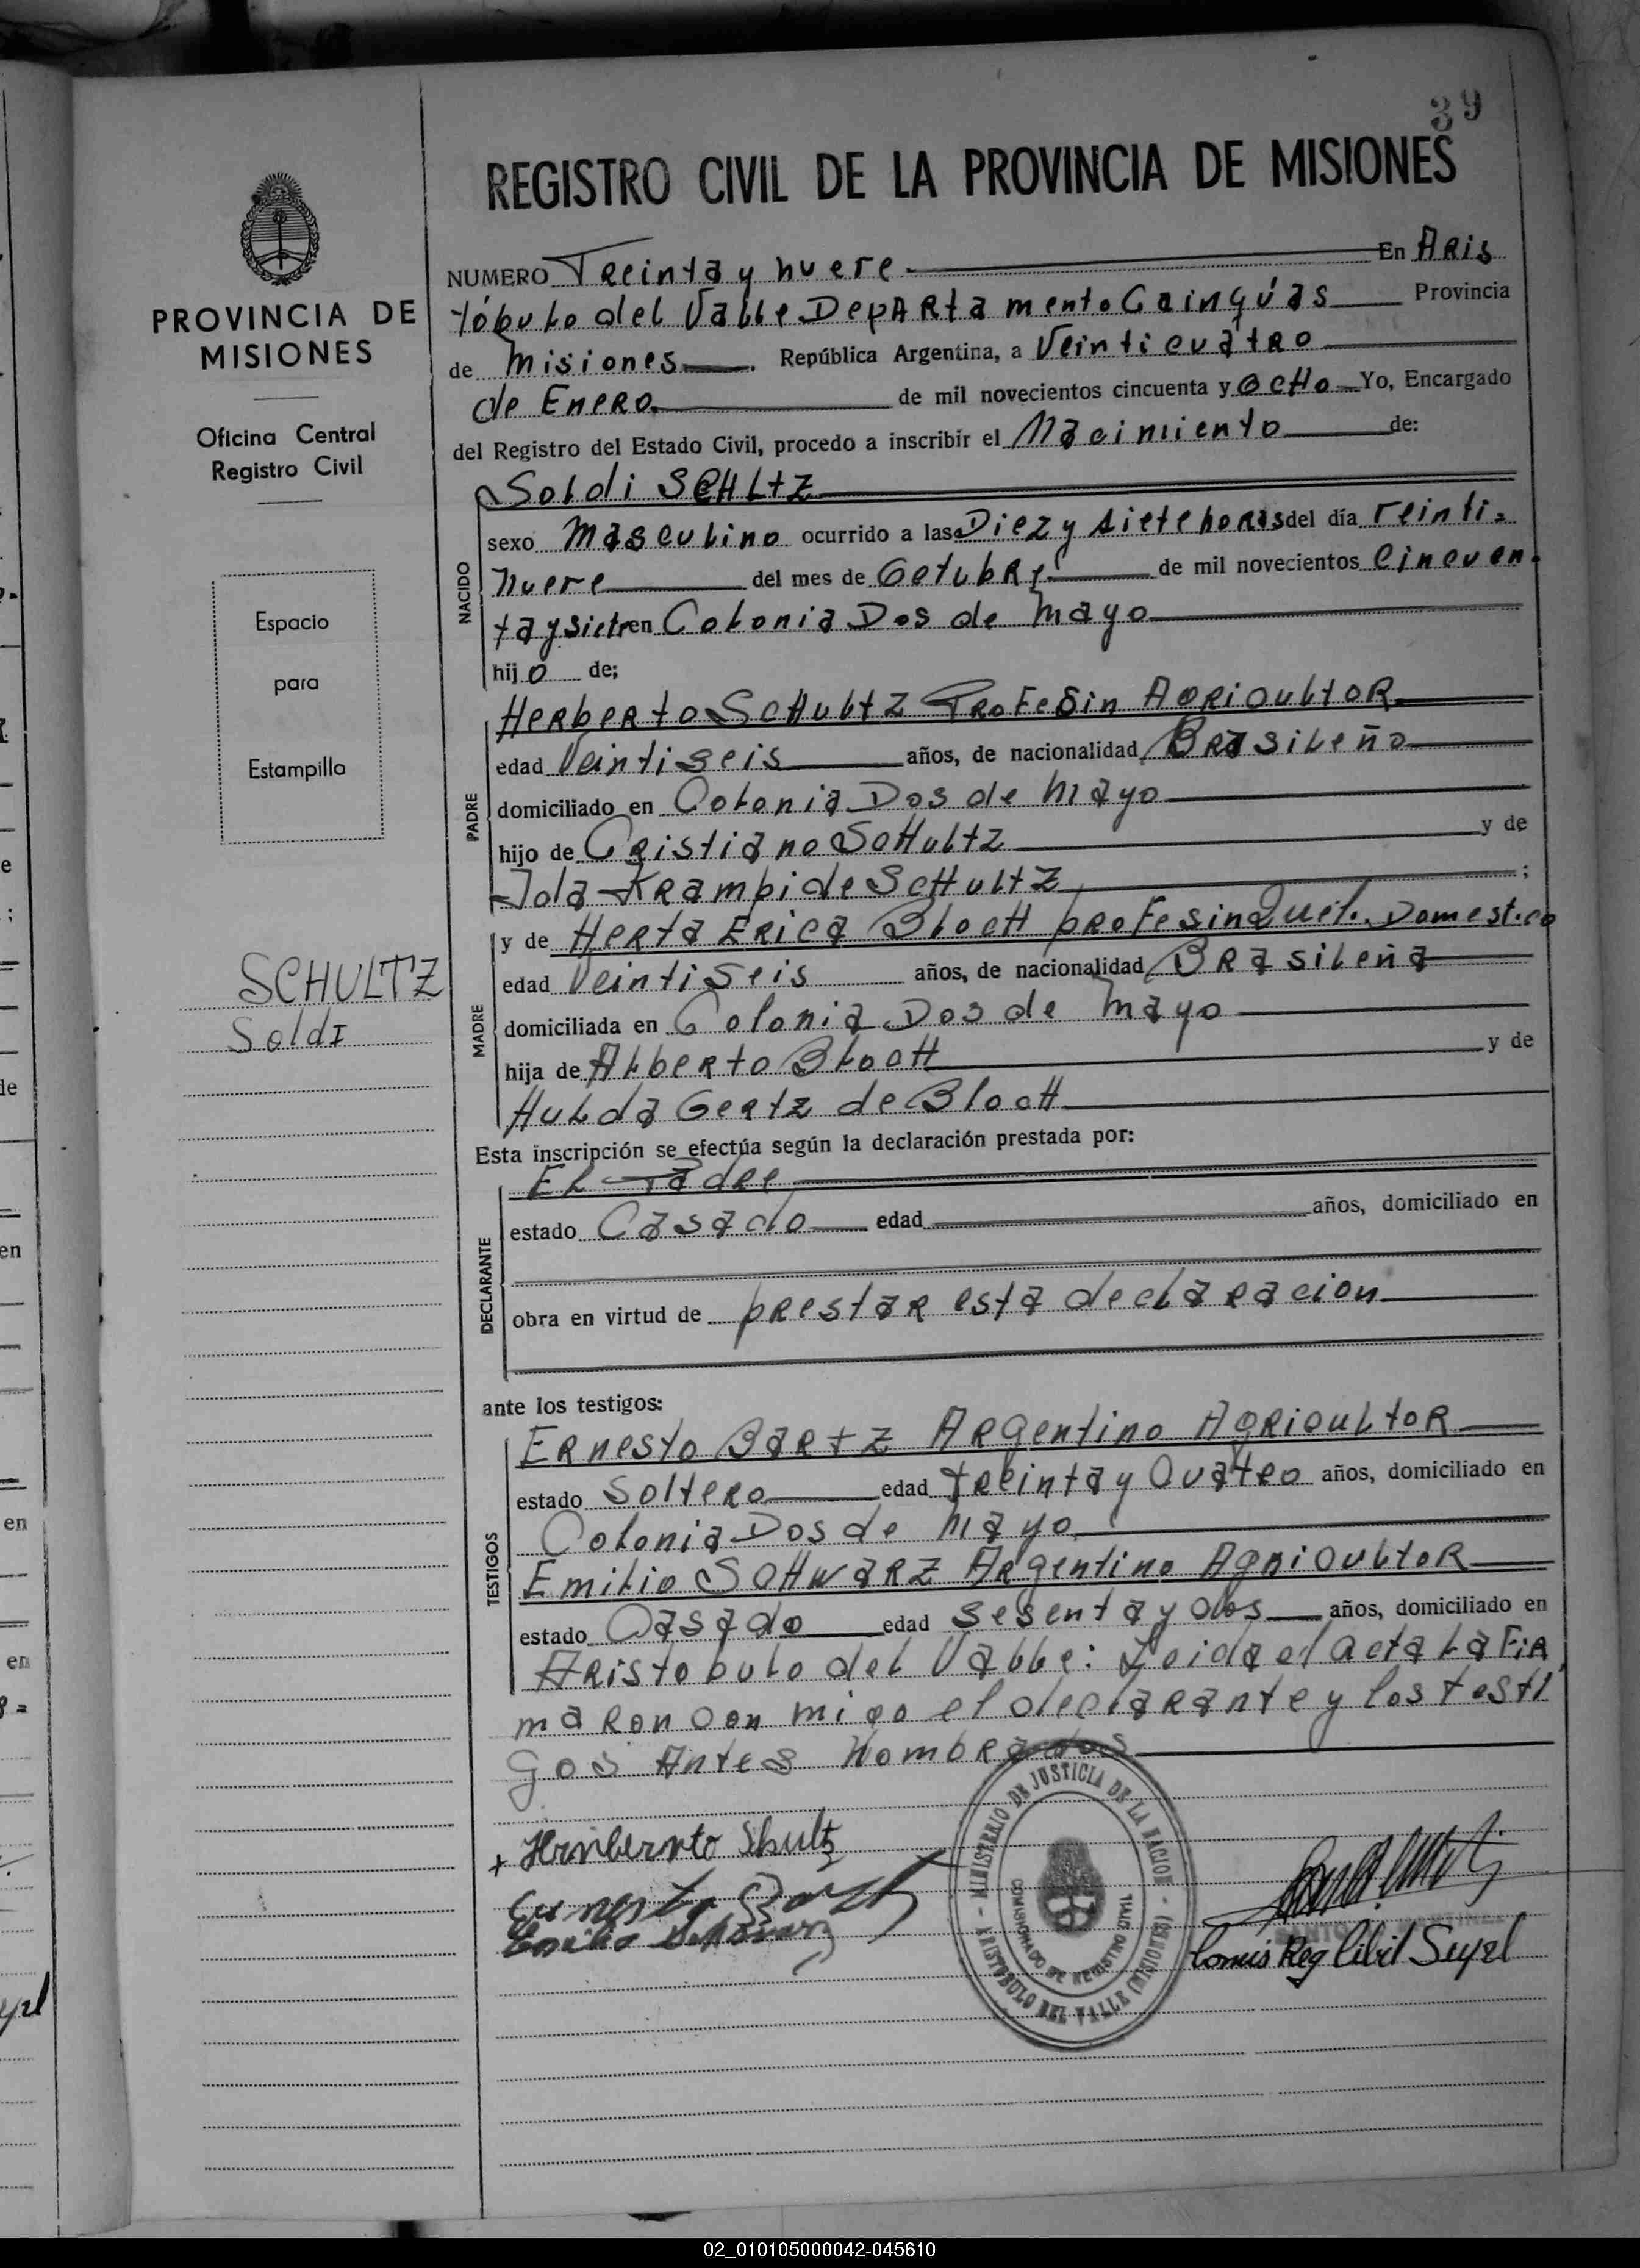 39
REGISTRO CIVIL DE LA PROVINCIA DE MISIONES
PROVINCIA DE
MISIONES
Oficina Central
Registro Civil
Espacio
para
Estampilla
SCHULTZ
SoldI
NUMERO Treinta y nueve En Aris
tóbulo del Valle Departamento Cainguás Provincia
de Misiones. República Argentina, a Veinticuatro
de Enero de mil novecientos cincuenta y ocHo Yo, Encargado
del Registro del Estado Civil, procedo a inscribir el Nacimiento de:
Soldi SCHLtZ
NACIDO
sexo Masculino ocurrido a las Diez y siete horas del día veinti=
nueve del mes de Octubre de mil novecientos Cincuen
ta y siete en Colonia Dos de Mayo
hijo de;
PADRE
Herberto ScHultz Profesin Agricultor
edad Veintiseis años, de nacionalidad Brasileño
domiciliado en Colonia Dos de Mayo
hijo de Cristiano ScHultz y de
Ida Krampi de ScHultz ;
MADRE
y de Herta Erica BlocH profesin Quet. Domestico
edad Veintiseis años, de nacionalidad Brasileña
domiciliada en Colonia Dos de Mayo
hija de Alberto BlocH y de
Hulda Gertz de BlocH
Esta inscripción se efectúa según la declaración prestada por:
DECLARANTE
El Padre
estado Casado edad años, domiciliado en
obra en virtud de prestar esta declaracion
ante los testigos:
TESTIGOS
Ernesto Bartz Argentino Agricultor
estado Soltero edad Treinta y Cuatro años, domiciliado en
Colonia Dos de Mayo
Emilio ScHwarz Argentino Agricultor
estado Casado edad sesenta y dos años, domiciliado en
Aristobulo del Valle: Leida el acta la Fir
maron con migo el declarante y los testi
gos Antes Nombrados
+ Heriberto Schultz
Ernesto Bartz
Emilio Schwarz
MINISTERIO DE JUSTICIA DE LA NACION - ARISTOBULO DEL VALLE (MISIONES) -
COMISIONADO DE REGISTRO CIVIL
Comis Reg Civil Supl
02_010105000042-045610